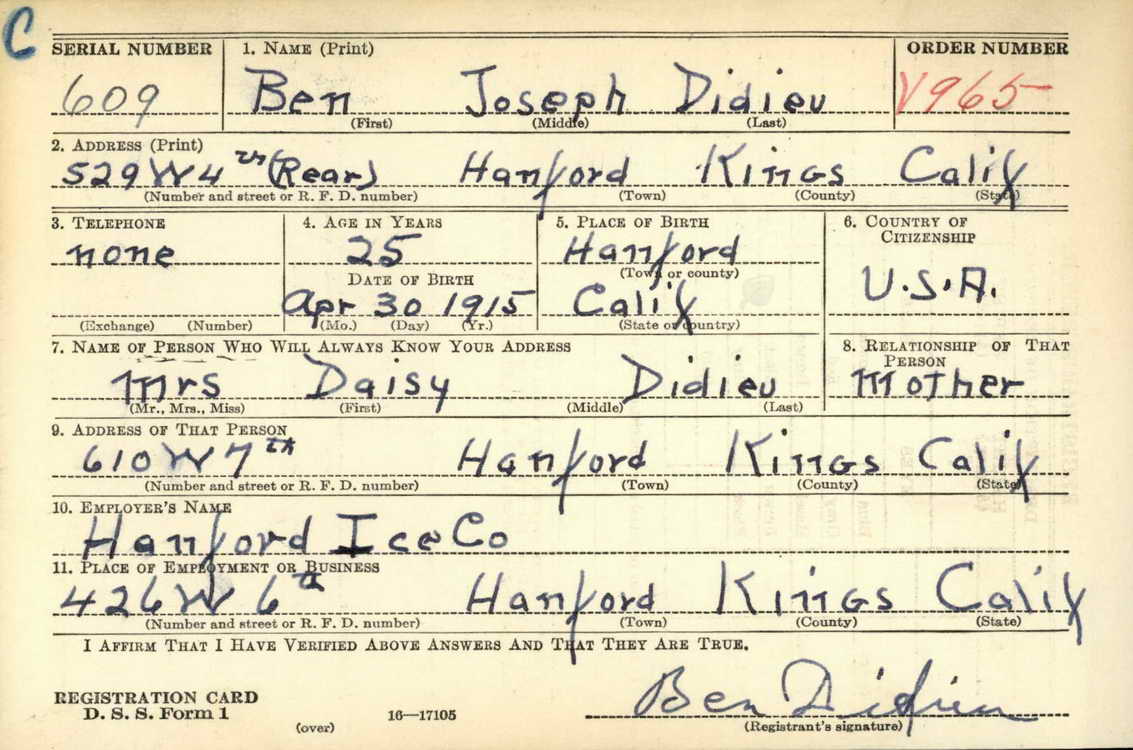 C
SERIAL NUMBER 1. NAME (Print) ORDER NUMBER
609 Ben Joseph Didieu V965
(First) (Middle) (Last)
2. ADDRESS (Print)
529 W 4th (Rear) Hanford Kings Calif
(Number and street or R. F. D. number) (Town) (County) (State)
3. TELEPHONE 4. AGE IN YEARS 5. PLACE OF BIRTH 6. COUNTRY OF CITIZENSHIP
none 25 Hanford U.S.A.
DATE OF BIRTH (Town or county)
Apr 30 1915 Calif
(Exchange) (Number) (Mo.) (Day) (Yr.) (State or country)
7. NAME OF PERSON WHO WILL ALWAYS KNOW YOUR ADDRESS 8. RELATIONSHIP OF THAT PERSON
Mrs Daisy Didieu Mother
(Mr., Mrs., Miss) (First) (Middle) (Last)
9. ADDRESS OF THAT PERSON
610 W 7th Hanford Kings Calif
(Number and street or R. F. D. number) (Town) (County) (State)
10. EMPLOYER'S NAME
Hanford Ice Co
11. PLACE OF EMPLOYMENT OR BUSINESS
426 W 6th Hanford Kings Calif
(Number and street or R. F. D. number) (Town) (County) (State)
I AFFIRM THAT I HAVE VERIFIED ABOVE ANSWERS AND THAT THEY ARE TRUE.
REGISTRATION CARD
D. S. S. Form 1 (over) 16—17105 Ben Didieu
(Registrant's signature)